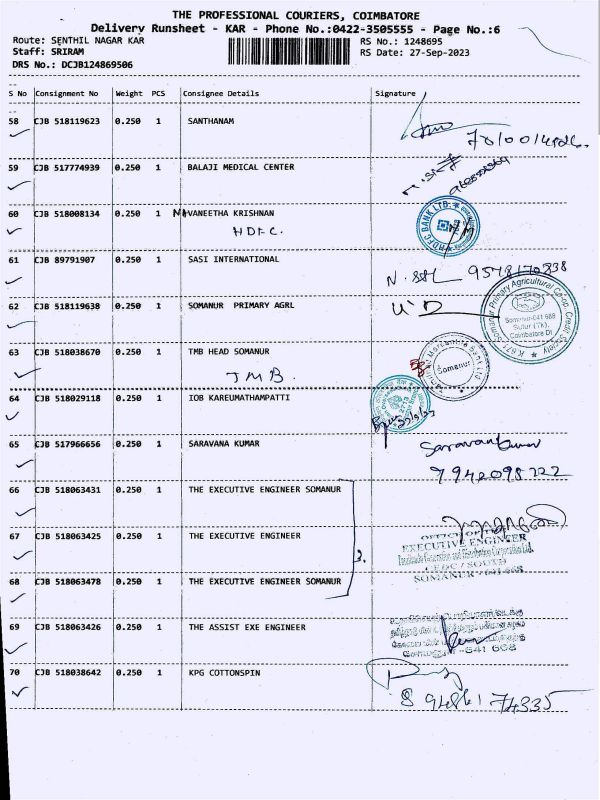 THE PROFESSIONAL COURIERS, COIMBATORE
Delivery Runsheet - KAR - Phone No.:0422-3505555 - Page No.:6
Route: SENTHIL NAGAR KAR
RS No.: 1248695
Staff: SRIRAM
RS Date: 27-Sep-2023
DRS No.: DCJB124869506
S No Consignment No Weight PCS Consignee Details Signature
58 CJB 518119623 0.250 1 SANTHANAM
59 CJB 517774939 0.250 1 BALAJI MEDICAL CENTER
60 CJB 518008134 0.250 1 NAVANEETHA KRISHNAN
HDFC.
HDFC BANK LTD.
61 CJB 89791907 0.250 1 SASI INTERNATIONAL
62 CJB 518119638 0.250 1 SOMANUR PRIMARY AGRL
Somanur Primary Agricultural Co-op. Credit Society
Somanur-641 668
Sulur (TK),
Coimbatore Dt
63 CJB 518038670 0.250 1 TMB HEAD SOMANUR
TMB.
Somanur
64 CJB 518029118 0.250 1 IOB KAREUMATHAMPATTI
65 CJB 517966656 0.250 1 SARAVANA KUMAR
Saravanakumar
9942098222
66 CJB 518063431 0.250 1 THE EXECUTIVE ENGINEER SOMANUR
67 CJB 518063425 0.250 1 THE EXECUTIVE ENGINEER
3.
OFFICE OF THE
EXECUTIVE ENGINEER
SOMANUR - 641 668
68 CJB 518063478 0.250 1 THE EXECUTIVE ENGINEER SOMANUR
69 CJB 518063426 0.250 1 THE ASSIST EXE ENGINEER
-641 668
70 CJB 518038642 0.250 1 KPG COTTONSPIN
94861 74335